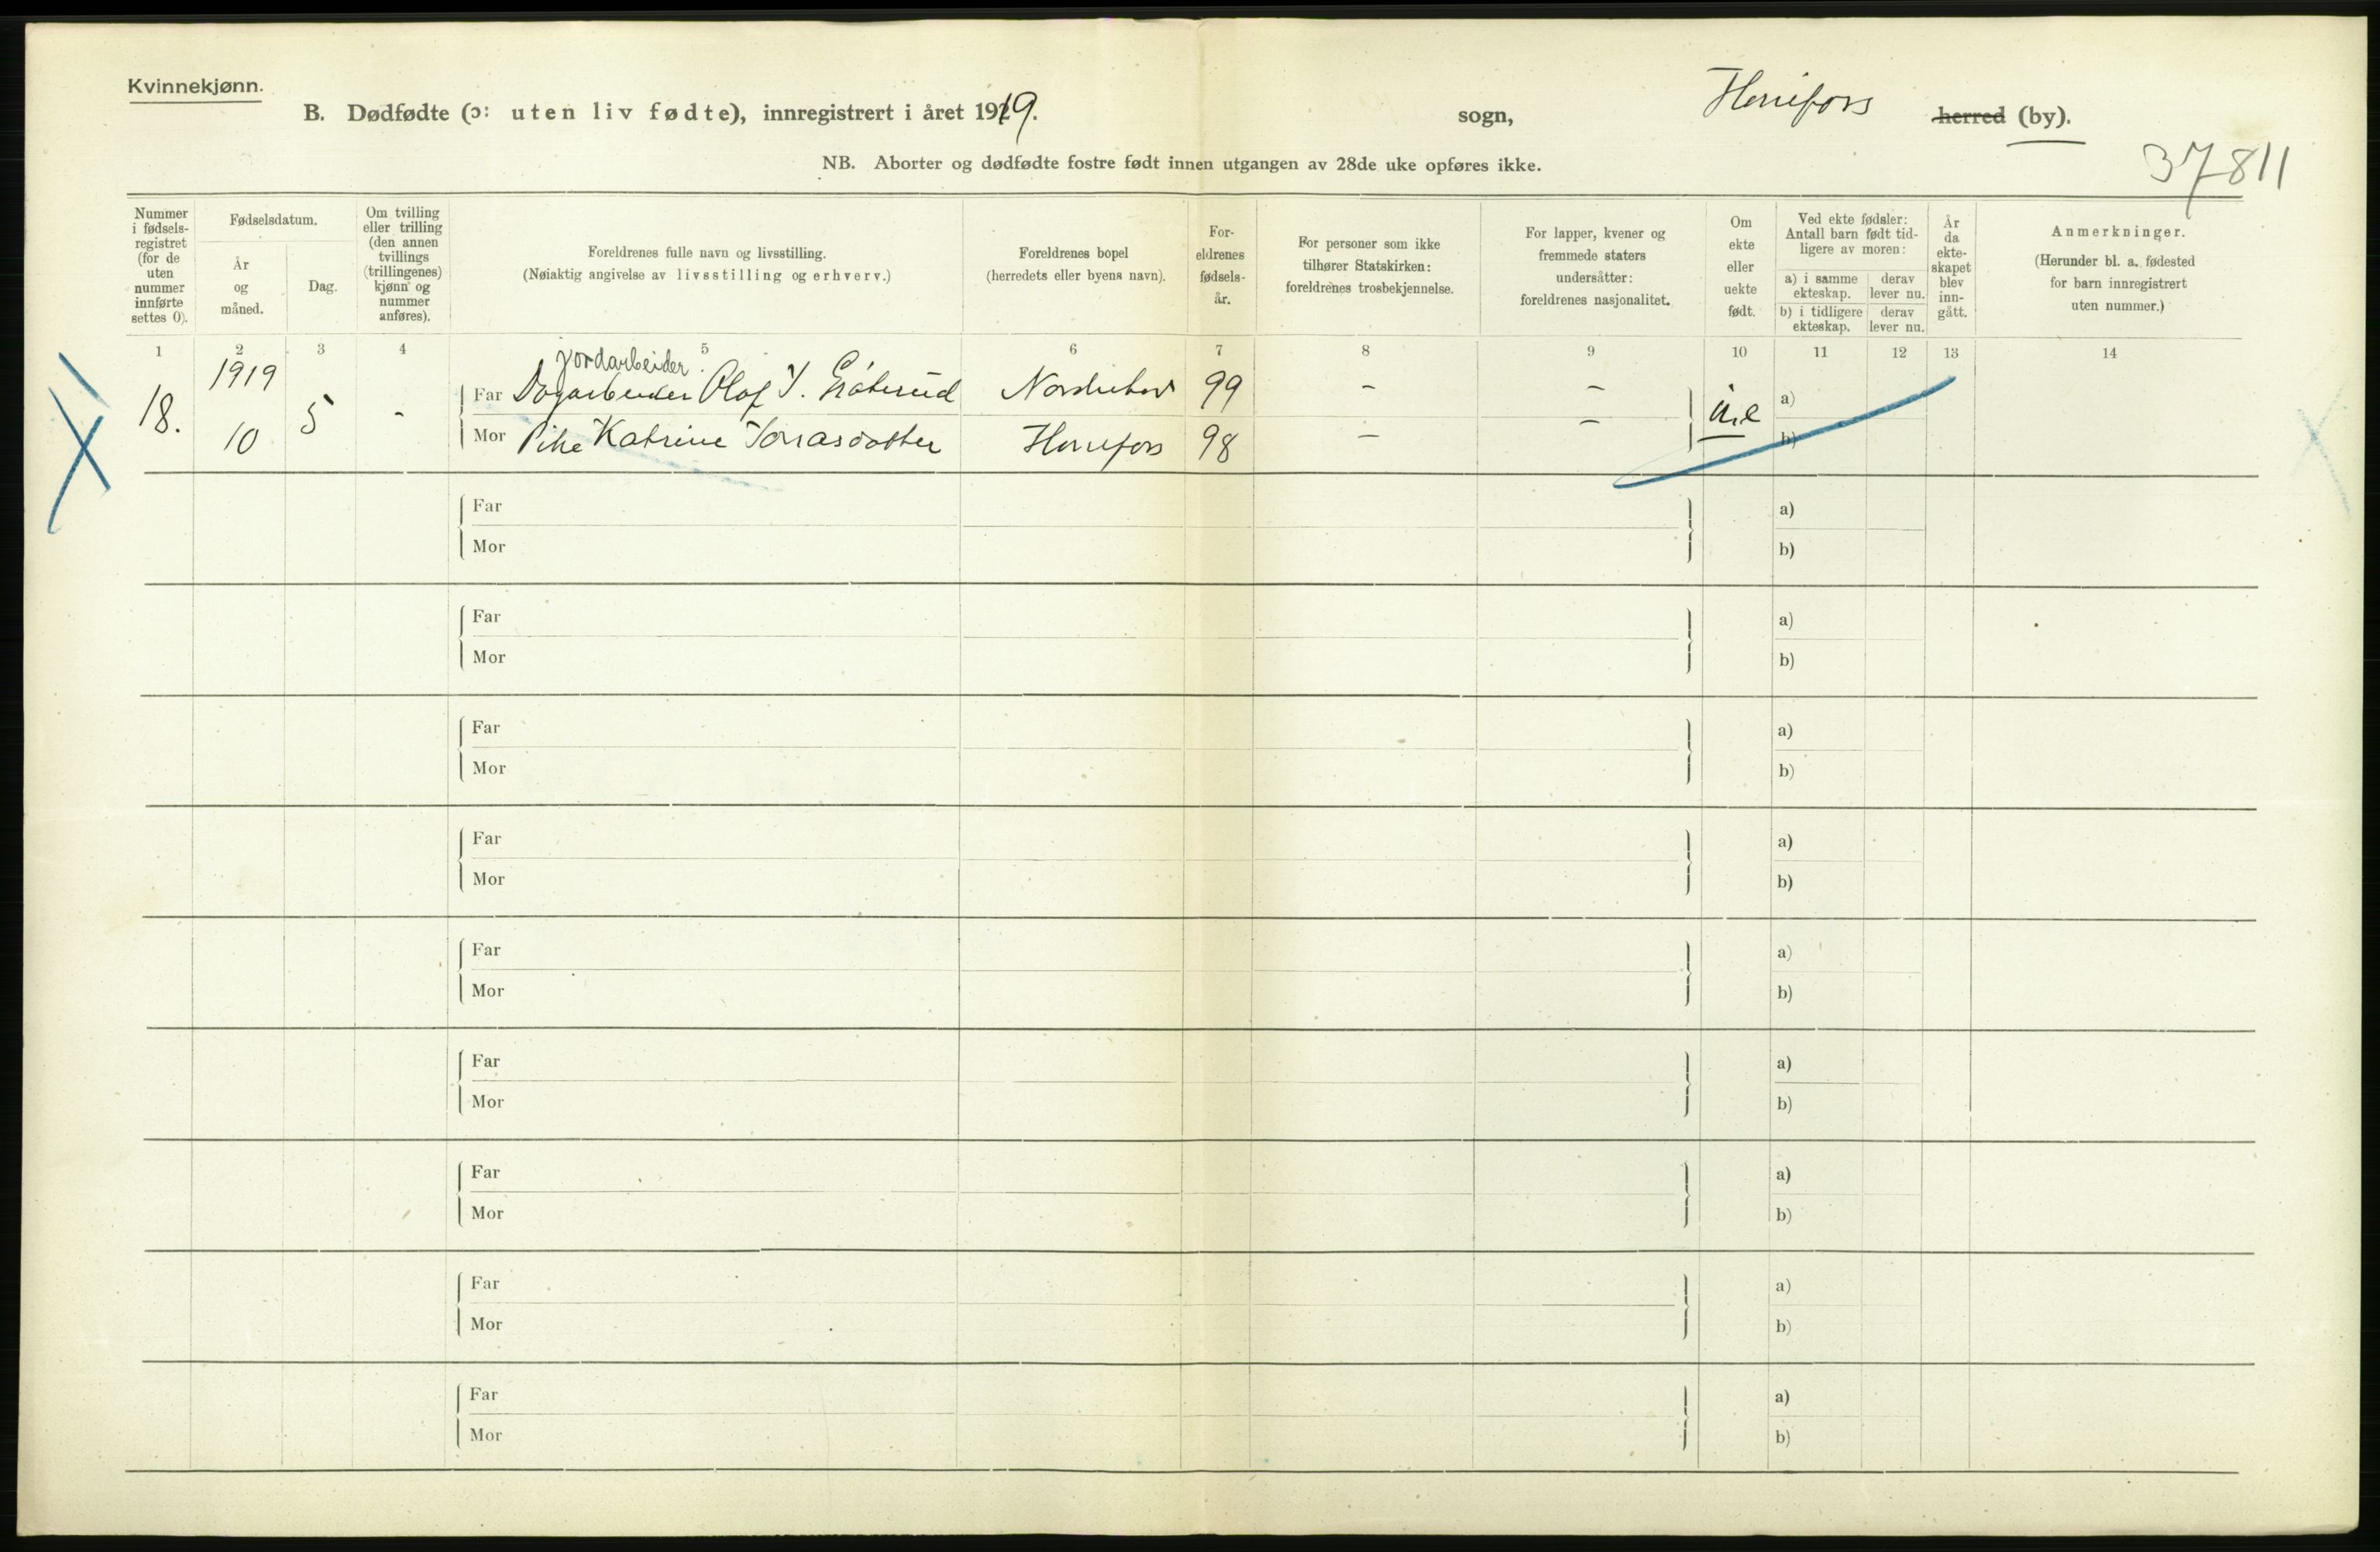 Kvinnekjønn.
B. Dødfødte (ɔ: uten liv fødte), innregistrert i året 1919.
sogn,
Hønefoss
herred (by).
NB. Aborter og dødfødte fostre født innen utgangen av 28de uke opføres ikke.
37811
Nummer
i fødsels-
registret
(for de
uten
nummer
innførte
settes 0).
Fødselsdatum.
År
og
måned.
Dag.
Om tvilling
eller trilling
(den annen
tvillings
(trillingenes)
kjønn og
nummer
anføres).
Foreldrenes fulle navn og livsstilling.
(Nøiaktig angivelse av livsstilling og erhverv.)
Foreldrenes bopel
(herredets eller byens navn).
For-
eldrenes
fødsels-
år.
For personer som ikke
tilhører Statskirken:
foreldrenes trosbekjennelse.
For lapper, kvener og
fremmede staters
undersåtter:
foreldrenes nasjonalitet.
Om
ekte
eller
uekte
født.
Ved ekte fødsler:
Antall barn født tid-
ligere av moren:
a) i samme
ekteskap.
derav
lever nu.
b) i tidligere
ekteskap.
derav
lever nu.
År
da
ekte-
skapet
blev
inn-
gått.
Anmerkninger.
(Herunder bl. a. fødested
for barn innregistrert
uten nummer.)
1 2 3 4 5 6 7 8 9 10 11 12 13 14
jordarbeider.
1919
18. 5 - Far Dagarbeider Olaf J. Norderhov 99 - - u.e a)
10 Mor Pike Katrine Hønefoss 98 - - b)
Far a)
Mor b)
Far a)
Mor b)
Far a)
Mor b)
Far a)
Mor b)
Far a)
Mor b)
Far a)
Mor b)
Far a)
Mor b)
Far a)
Mor b)
Far a)
Mor b)